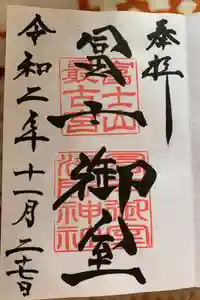 奉拝
冨士御室
富士山
最古宮
浅間神社
令和二年十一月二七日